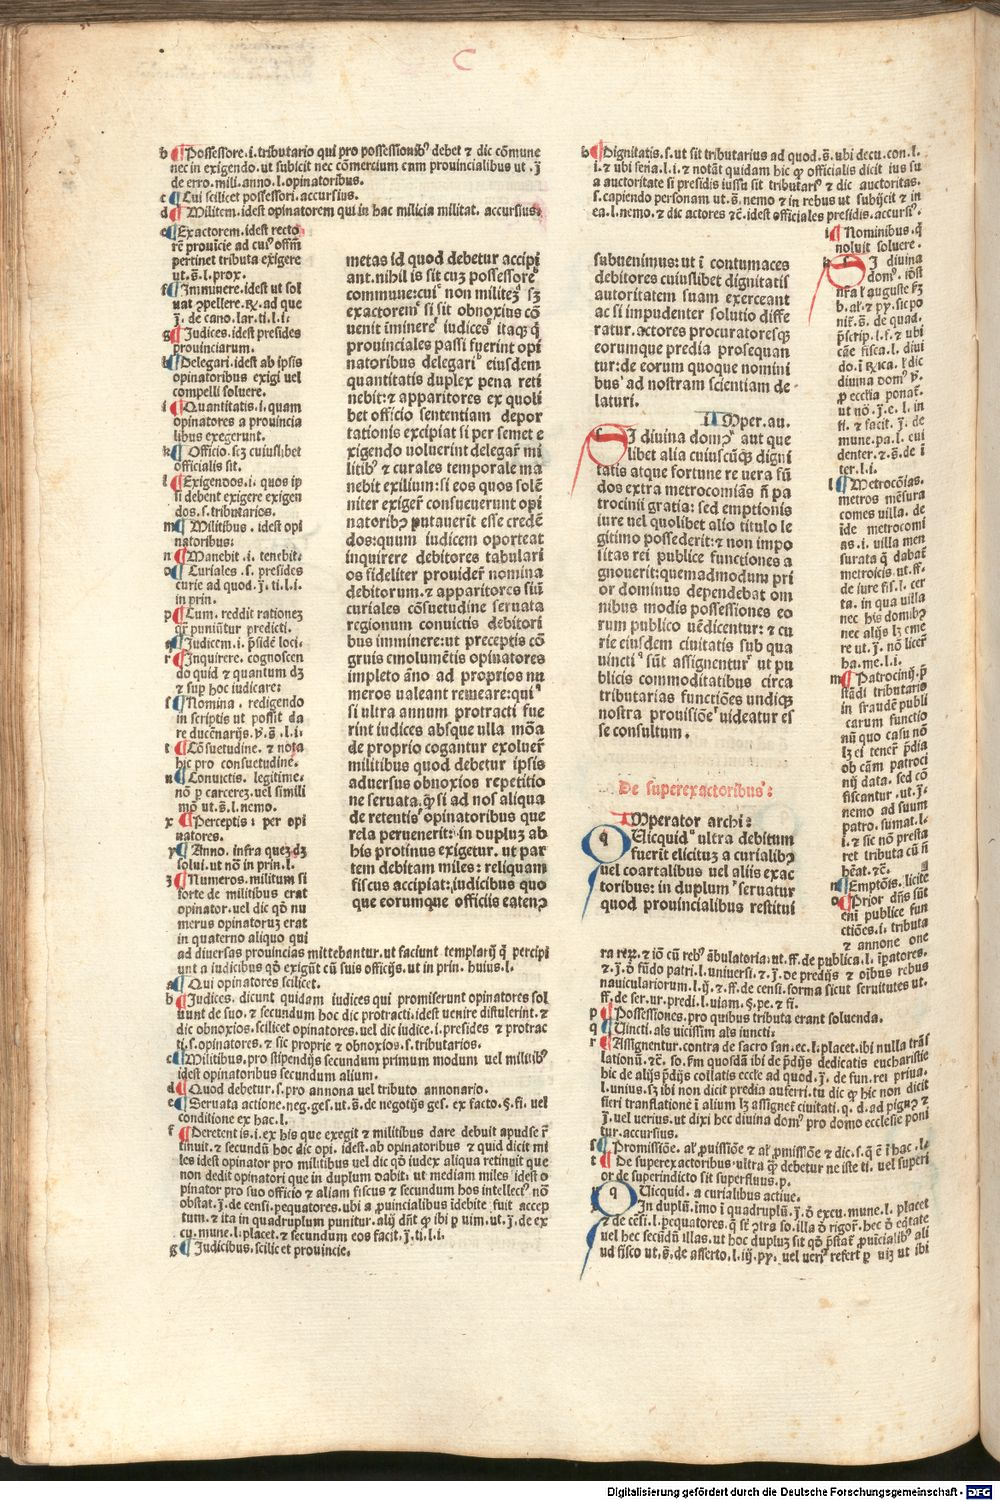 C
b Possessore.i.tributario qui pro possessionibꝰ debet ⁊ dic cōmune
nec in exigendo.ut subicit nec cōmercium cum prouincialibus ut.ĵ
de erro.mili.anno.l.opinatoribus.
c Cui scilicet possessori.accursius.
d Militem.idest opinatorem qui in hac milicia militat. accursiusꝫ
e Exactorem.idest recto
rē prouīcie ad cuiꝰ offm̄
pertinet tributa exigere
ut.s̄.l.prox.
f Imminere.idest ut sol
uat ꝯpellere.℞.ad que
ĵ.de cano.lar.ti.l.i.
g Judices.idest presides
prouinciarum.
h Delegari.idest ab ipsis
opinatoribus exigi uel
compelli soluere.
i Quantitatis.i.quam
opinatores a prouincia
libus exegerunt.
k Officio.scꝫ cuiuslibet
officialis sit.
l Exigendos.i.quos ip
si debent exigere exigen
dos.s.tributarios.
m Militibus.idest opi
natoribus:
n Manebit.i.tenebit.
o Curiales.s.presides
curie ad quod.ĵ.ti.l.i.
in prin.
p Cum.reddit rationeꝫ
qr̄ puniūtur predicti.
q Judicem.i.p̄sidē loci.
r Inquirere.cognoscen
do quid ⁊ quantum dꝫ
⁊ sup hoc iudicare:
s Nomina. redigendo
in scriptis ut possit da
re ducēnarijs.ꝟ.s̄.l.i.
t Cōsuetudine.⁊ nota
hic pro consuetudine.
u Conuictis. legitime.
nō ꝑ carcereꝫ.uel simili
mō ut.s̄.l.nemo.
x Perceptis: per opi
natores.
y Anno.infra queꝫ dꝫ
solui.ut nō in prin.l.
ꝫ Numeros.militum si
forte de militibus erat
opinator.uel dic qō nu
merus opinatoruꝫ erat
in quaterno aliquo qui
ad diuersas prouincias mittebantur.ut faciunt templarij q̄ percipi
unt a iudicibus qō exigūt cū suis officijs.ut in prin.huius.l.
a Qui opinatores scilicet.
b Judices.dicunt quidam iudices qui promiserunt opinatores sol
uunt de suo.⁊ secundum hoc dic protracti.idest uenire distulerint.⁊
dic obnoxios.scilicet opinatores.uel dic iudice.i.presides ⁊ protrac
ti.s.opinatores.⁊ sic proprie ⁊ obnoxios.s.tributarios.
c Militibus.pro stipendijs secundum primum modum uel militibꝰ
idest opinatoribus secundum alium.
d Quod debetur.s.pro annona uel tributo annonario.
e Seruata actione.neg.ges.ut.s̄.de negotijs ges. ex facto.§.fi.uel
conditione ex hac.l.
f Deretent is.i.ex his que exegit ⁊ militibus dare debuit apudse r̄
tinuit.⁊ secundū hoc dic opi.idest.ab opinatoribus ⁊ quid dicit mi
les idest opinator pro militibus uel dic qō iudex aliqua retinuit que
non dedit opinatori que in duplum dabit.ut mediam miles idest o
pinator pro suo officio ⁊ aliam fiscus ⁊ secundum hos intellecꝰ nō
obstat.ĵ.de censi.pequatores.ubi a prouincialibus idebite fuit accep
tum.⁊ ita in quadruplum punitur.alij dn̄t ꝙ ibi ꝑ uim.ut.ĵ.de ex
cu.mune.l.placet.⁊ secundum eos facit.ĵ.ti.l.i.
g Judicibus.scilicet prouincie.
metas id quod debetur accipi
ant.nihil is sit cuꝫ possessoreᵇ
commune:cuiᶜ non militeꝫᵈ sꝫ
exactoremᵉ si sit obnoxius cō
uenit īminereᶠ iudicesᵍ itaqꝫ q̄
prouinciales passi fuerint opi
natoribus delegariʰ eiusdem
quantitatis duplex pena reti
nebit:⁊ apparitores ex quoli
bet officio sententiam depor
tationis excipiat si per semet e
xigendo uoluerint delegar̄ mi
litibꝰ ⁊ curales temporale ma
nebit exilium:si eos quos solē
niter exiger̄ consueuerunt opi
natoribꝫ putauerit esse credē
dos:quum iudicem oporteat
inquirere debitores tabulari
os fideliter prouider̄ nomina
debitorum.⁊ apparitores siū
curiales cōsuetudine seruata
regionum conuictis debitori
bus imminere:ut preceptis cō
gruis emolumētis opinatores
impleto āno ad proprios nu
meros ualeant remeare:quiᵃ
si ultra annum protracti fue
rint iudices absque ulla mōa
de proprio cogantur exoluer̄
militibus quod debetur ipsis
aduersus obnoxios repetitio
ne seruata.ꝙ si ad nos aliqua
de retentisᶠ opinatoribus que
rela peruenerit:in dupluꝫ ab
his protinus exigetur.ut par
tem debitam miles:reliquam
fiscus accipiat:iudicibus quo
que eorumque officiis eatenꝫ
h Dignitatis.s.ut sit tributarius ad quod.s̄.ubi decu.con.l.
i.⁊ ubi sena.l.i.⁊ notāt quidam hic ꝙ officialis dicit ius su
a auctoritate si presidis iussu sit tributarꝰ ⁊ dic auctoritas.
s.capiendo personam ut.s̄.nemo ⁊ in rebus ut subijcit ⁊ in
ea.l.nemo.⁊ dic actores ⁊c̄.idest officiales presidis.accursꝰ.
subuenimus:ut ī contumaces
debitores cuiuslibet dignitatis
autoritatem suam exerceant
ac si impudenter solutio diffe
ratur.actores procuratoresqꝫ
eorumque predia prosequan
tur:de eorum quoque nomini
busⁱ ad nostram scientiam de
laturi.
Imper.au.
SI diuina domꝰ aut que
libet alia cuiuscūqꝫ digni
tatis atque fortune re uera sū
dos extra metrocomiās n̄ pa
trocinii gratia:sed emptionis
iure uel quolibet alio titulo le
gitimo possederit:⁊ non impo
sitas rei publice functiones a
gnouerit:quemadmodum pri
or dominus dependebat om
nibus modis possessiones eo
rum publico uēdicentur:⁊ cu
rie eiusdem ciuitatis sub qua
uincti sūt assignentur ut pu
blicis commoditatibus circa
tributarias functiōes undiqꝫ
nostra prouisiōe uideatur es
se consultum.
De superexactoribus:
Imperator archi:
ALicquid ultra debitum
fuerit elicituꝫ a curialibꝫ
uel coartalibus uel aliis exac
toribus:in duplum seruatur
quod prouincialibus restitui
i Nominibus.q̄
noluit soluere.
SI diuina
domꝰ.idst
nr̄a ł auguste sꝫ
b.ał.⁊ py.sic po
nit̄.s̄.de quad.
p̄scrip.l.f.⁊ ubi
cāe fisca.l.diui
do.i ℞ica.ł dic
diuina domꝰ ꝟ.
ꝓ ecclīa ponat̄.
ut nō.ĵ.e.l.in
fi.⁊ facit.ĵ.de
mune.pa.l.cui
denter.⁊.s̄.de ī
ter.l.i.
l Metrocōias.
metros mēsura
comes uilla.de
īde metrocomi
as.i.uilla men
surata q̄ dabat̄
metroicis.ut.ff.
de iure fis.l.cer
ta.in qua uilla
nec his domibꝫ
nec alijs lꝫ eme
re ut.ĵ.nō licer̄
ha.me.l.i.
m Patrocinij.p̄
stādi tributario
in fraudē publi
carum functio
nū quo casu nō
lꝫ ei tener̄ p̄dia
ob cām patroci
nij data.sed cō
fiscantur.ut.ĵ.
nemo ad suum
patro.sumat.l.
i.⁊ sic nō presta
ret tributa cū n̄
hēat.⁊c̄.
n Emptōis.licite
o Prior dn̄s sūt
eni publice fun
ctiōes.i.tributa
⁊ annone one
ra reꝝ.⁊ iō cū rebꝰ ābulatoria:ut.ff.de publica.l.īpatores.
⁊.ĵ.ō fūdo patri.l.uniuersi.⁊.ĵ.de predijs ⁊ oibus rebus
nauiculariorum.l.ij.⁊.ff.de censi.forma sicut seruitutes ut.
ff.de ser.ur.predi.l.uiam.§.pe.⁊ fi.
p Possessiones.pro quibus tributa erant soluenda.
q Uincti.als uicissim als iuncti:
r Assignentur.contra de sacro san.ec.l.placet.ibi nulla trās
lationū.⁊c̄.so.fm quosdā ibi de p̄dijs dedicatis eucharistie
hic de alijs p̄dijs collatis eccle ad quod.ĵ.de fun.rei priua.
l.unius.sꝫ ibi non dicit predia auferri.tu dic ꝙ hic non dicit
fieri translationē ī alium lꝫ assignet̄ ciuitati.q.d.ad pignꝫ ⁊
ĵ.uel uerius.ut dixi hec diuina domꝰ pro domo ecclesie poni
tur.accursius.
s Promissiōe.ał ꝓuissiōe ⁊ ał ꝓmissiōe ⁊ dic.s.q̄ ē ī hac.l.
t De superexactoribus.ultra ꝙ debetur ne iste ti.uel superi
or de superindicto sit superfluus.p.
ALicquid.a curialibus actiue.
In duplū.īmo ī quadruplū.ĵ.ō excu.mune.l.placet
⁊ de cēsi.l.pequatores.q̄ sēꝑ ꝯtra so.illa ō rigor̄.hec ō eqtate
uel hec secūdū illas.ut hoc dupluꝫ sit qō p̄stat̄ ꝓuīcialibꝰ ali
ud fisco ut.s̄.de asserto.l.iij.pp.uel uerꝰ refert ꝑ uiꝫ ut ibi
Digitalisierung gefördert durch die Deutsche Forschungsgemeinschaft - DFG